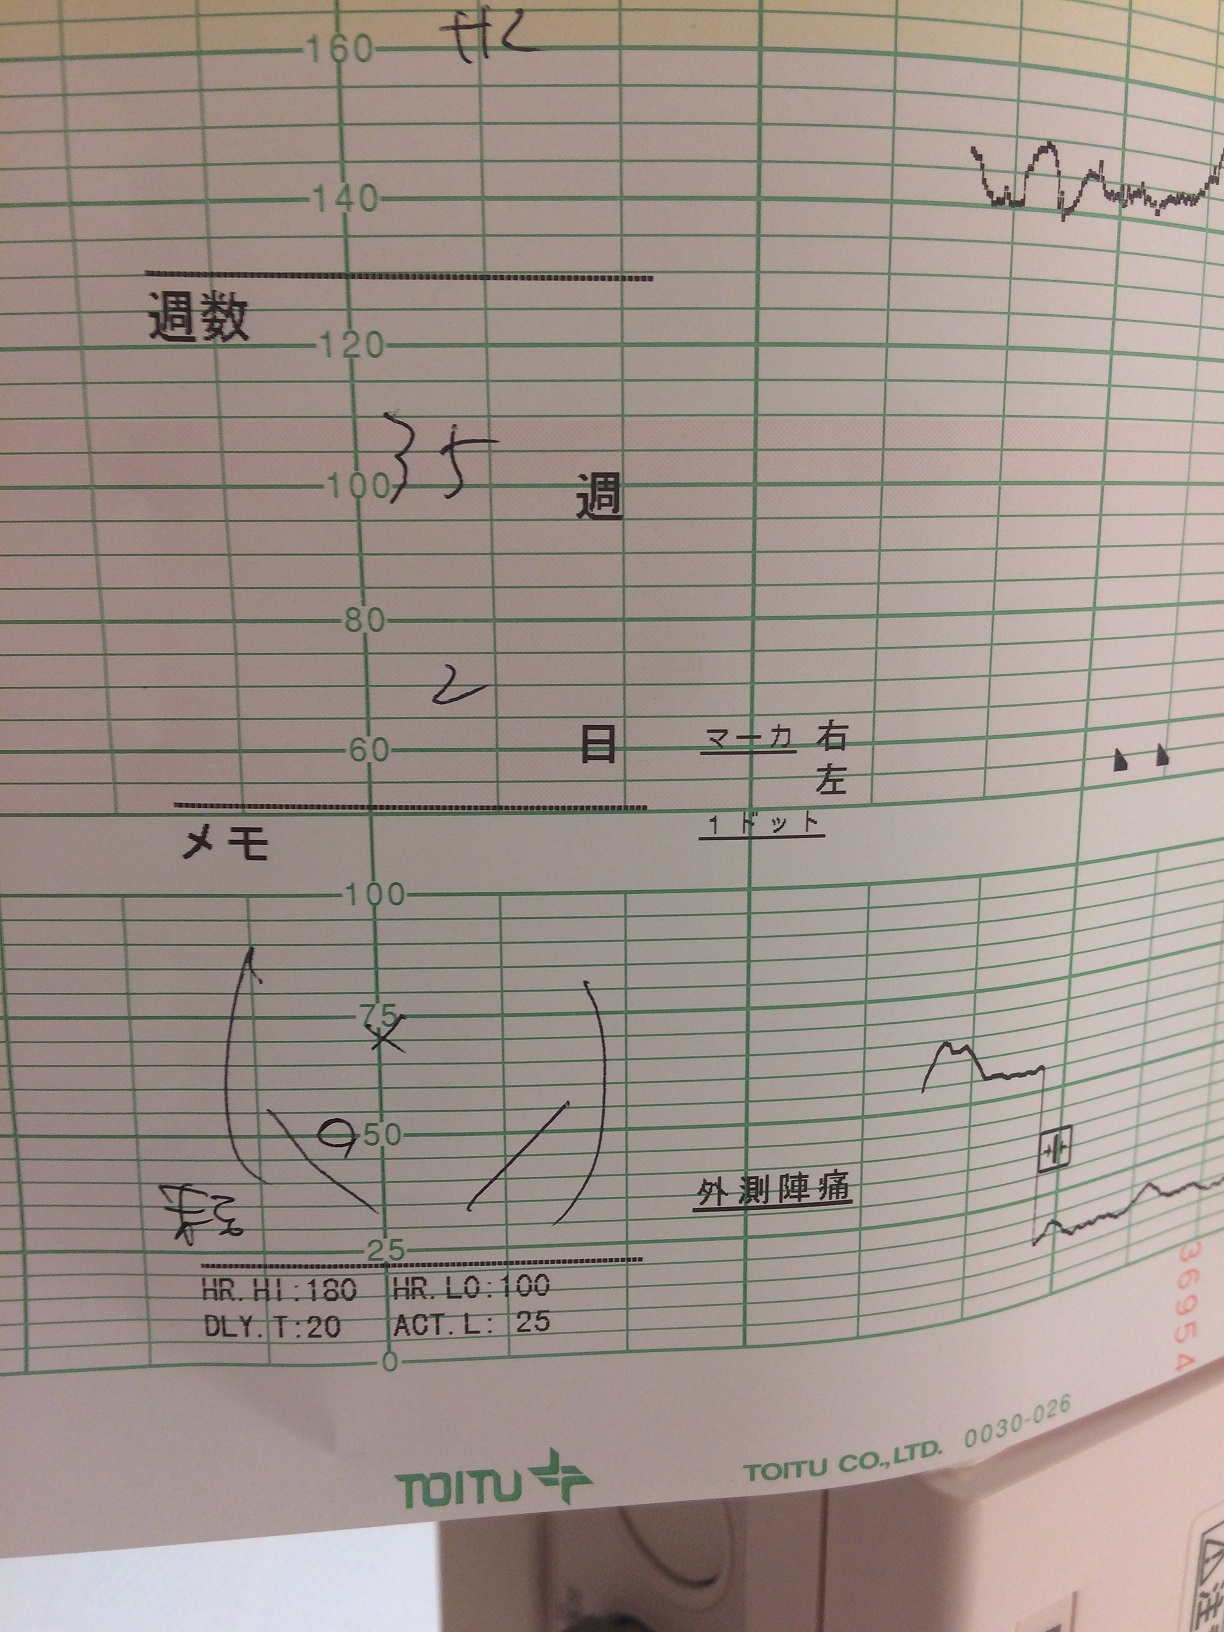 160
140
週数
120
35
100
週
80
2
60
日
マーカ 右
左
メモ
1 ドット
100
75
50
外測陣痛
25
HR.HI:180 HR.LO:100
DLY.T:20 ACT.L: 25
0
36954
TOITU
TOITU CO.,LTD. 0030-026
注